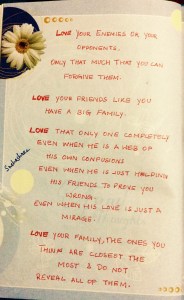 LOVE YOUR ENEMIES OR YOUR
OPPONENTS.
ONLY THAT MUCH THAT YOU CAN
FORGIVE THEM.
LOVE YOUR FRIENDS LIKE YOU
HAVE A BIG FAMILY.
LOVE THAT ONLY ONE COMPLETELY
EVEN WHEN HE IS A WEB OF
HIS OWN CONFUSIONS
EVEN WHEN HE IS JUST HELPING
HIS FRIENDS TO PROVE YOU
WRONG.
EVEN WHEN HIS LOVE IS JUST A
MIRAGE.
LOVE YOUR FAMILY, THE ONES YOU
THINK ARE CLOSEST THE
MOST & DO NOT
REVEAL ALL OF THEM.